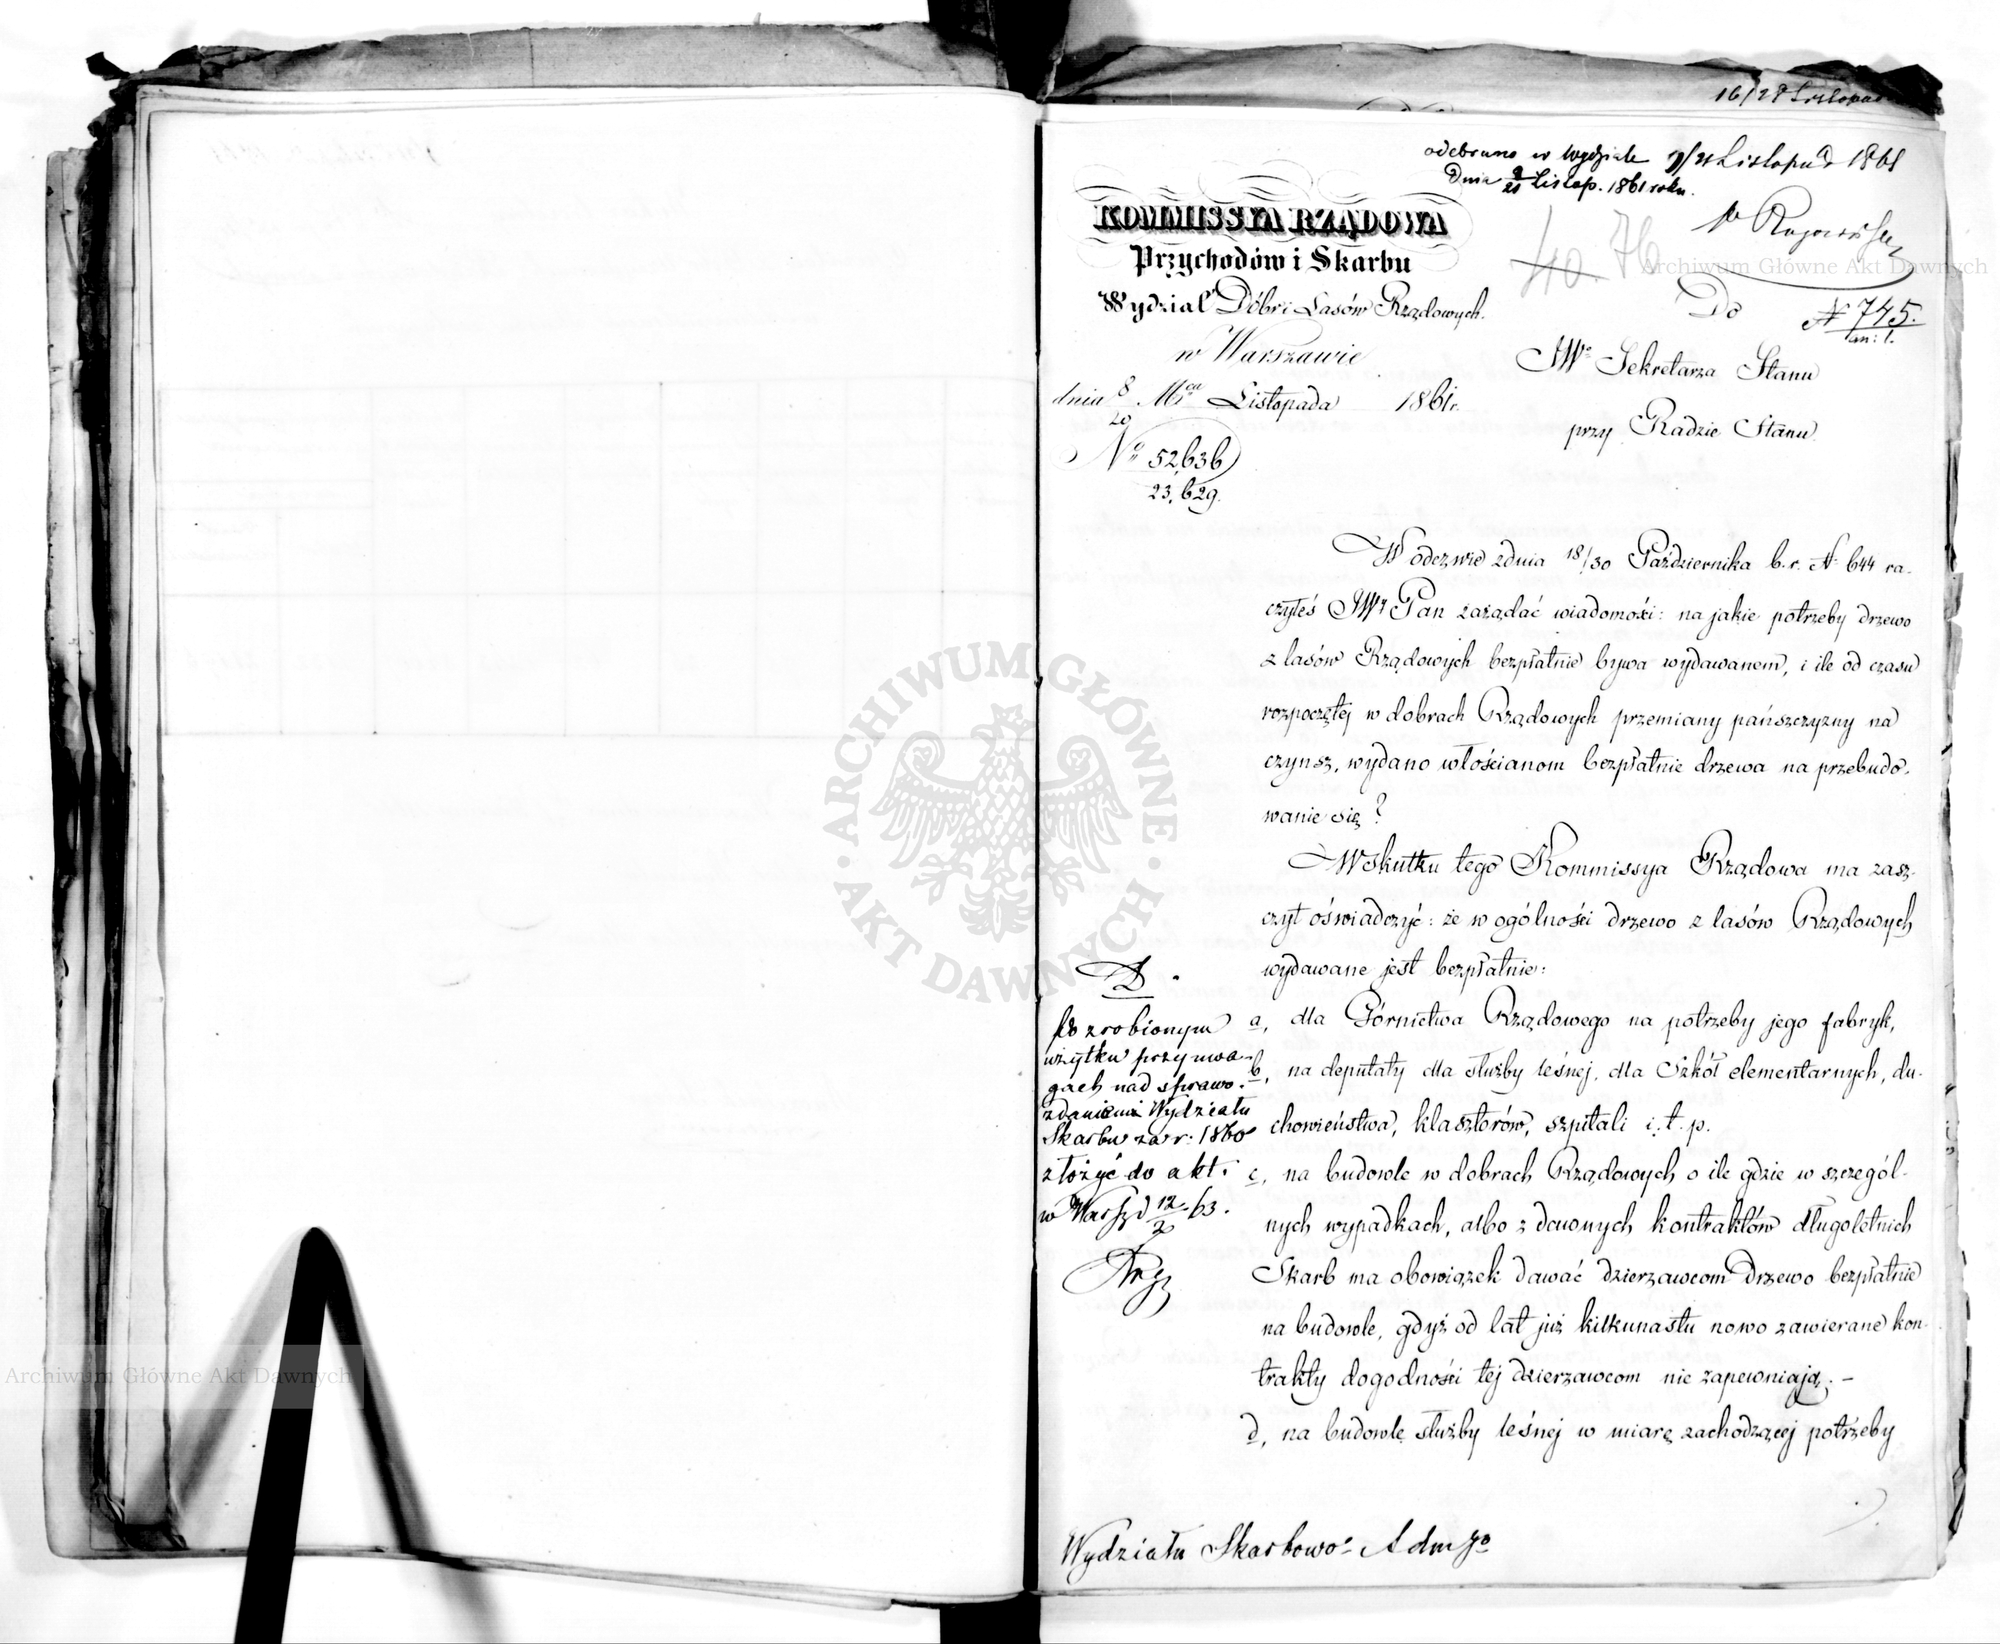 16/28 Listopad
odebrano w Wydziale 9/21 Listopad 1861
dnia 9/21 Listop. 1861 roku.
KOMMISSYA RZĄDOWA
Przychodów i Skarbu
40. 76
Wydział Dóbr i Lasów Rządowych.
Do
№ 745.
w Warszawie
JWo Sekretarza Stanu
dnia 8/20 Mca Listopada 1861 r.
przy Radzie Stanu
No 52,636
23,629.
W odezwie zdnia 18/30 Października b.r. № 644 ra-
czyłeś JWy Pan zażądać wiadomości: na jakie potrzeby drzewo
z lasów Rządowych bezpłatnie bywa wydawanem, i ile od czasu
rozpoczętej w dobrach Rządowych przemiany pańszczyzny na
czynsz, wydano włościanom bezpłatnie drzewa na przebudo-
wanie się?
W skutku tego Kommissya Rządowa ma zasz-
czyt oświadczyć: że w ogólności drzewo z lasów Rządowych
wydawane jest bezpłatnie:
a, dla Górnictwa Rządowego na potrzeby jego fabryk,
b, na deputaty dla służby leśnej, dla Szkół elementarnych, du-
chowieństwa, klasztorów, szpitali i.t.p.
c, na budowle w dobrach Rządowych o ile gdzie w szczegól-
nych wypadkach, albo z dawnych kontraktów długoletnich
Skarb ma obowiązek dawać dzierżawcom drzewo bezpłatnie
na budowle, gdyż od lat już kilkunastu nowo zawierane kon-
trakty dogodności tej dzierżawcom nie zapewniają. –
d, na budowlę służby leśnej w miarę zachodzącej potrzeby
D
Po zrobionym
użytku przy uwa-
gach nad sprawo-
zdaniem Wydziału
Skarbu za r: 1860
złożyć do akt.
w Warsz d 12/2 63.
Wydziału Skarbowo Admgo
ARCHIWUM GŁÓWNE AKT DAWNYCH
Archiwum Główne Akt Dawnych
Archiwum Główne Akt Dawnych